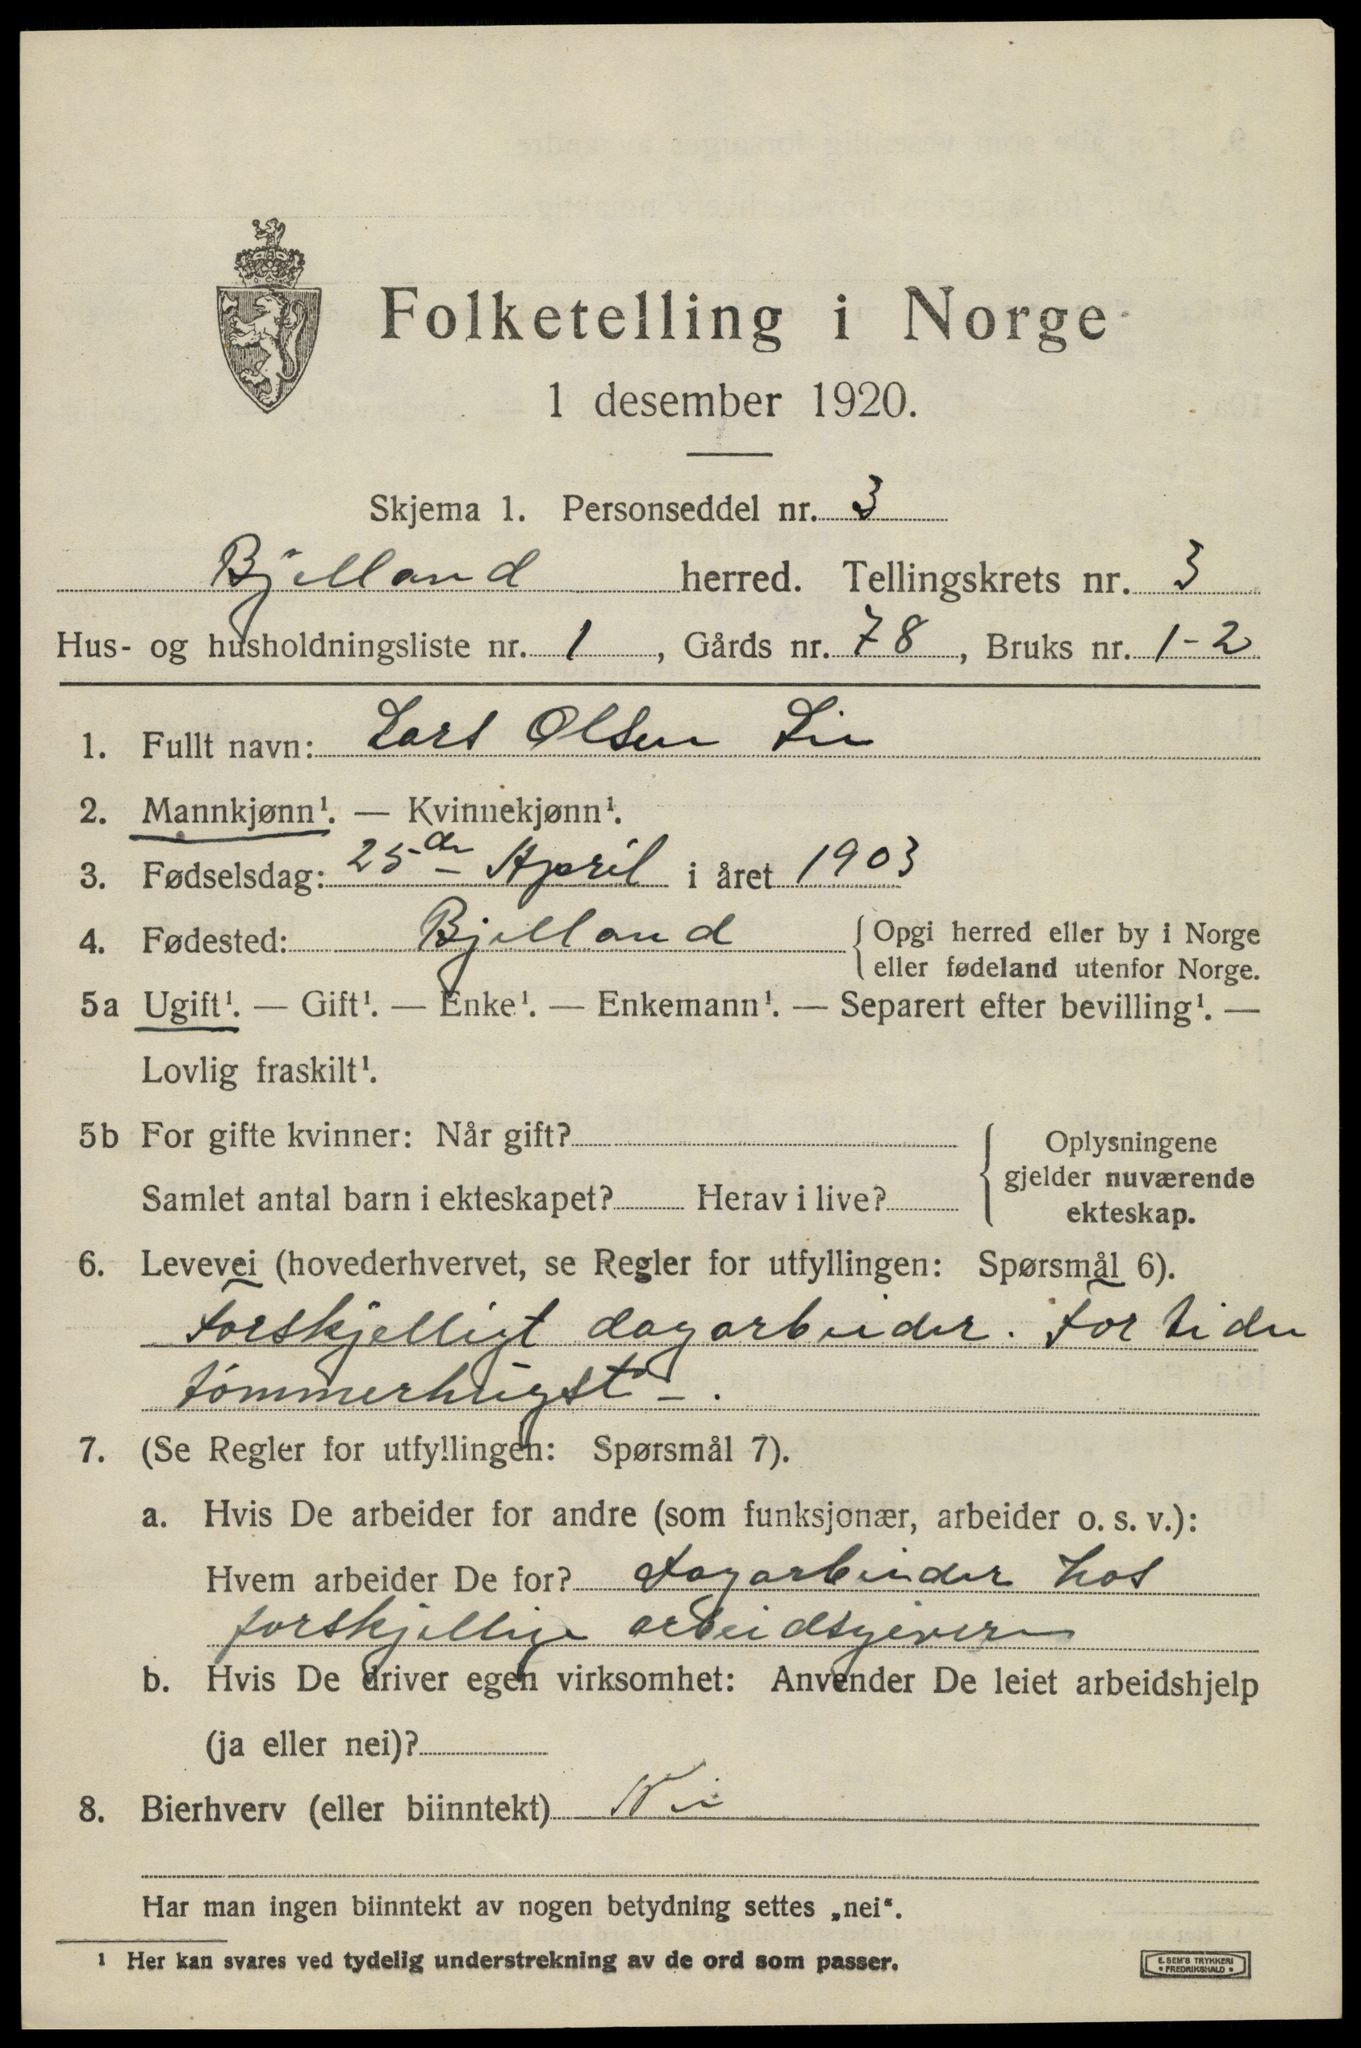 Folketelling i Norge
1 desember 1920.
Skjema 1. Personseddel nr. 3
Bjelland herred. Tellingskrets nr. 3
Hus- og husholdningsliste nr. 1, Gårds nr. 78, Bruks nr. 1-2
1. Fullt navn: Lars Olsen Lie
2. Mannkjønn¹. — Kvinnekjønn¹.
3. Fødselsdag: 25de April i året 1903
4. Fødested: Bjelland {Opgi herred eller by i Norge
eller fødeland utenfor Norge.
5a Ugift¹. — Gift¹. — Enke¹. — Enkemann¹. — Separert efter bevilling¹. —
Lovlig fraskilt¹.
5b For gifte kvinner: Når gift?
Samlet antal barn i ekteskapet? Herav i live?
Oplysningene
gjelder nuværende
ekteskap.
6. Levevei (hovederhvervet, se Regler for utfyllingen: Spørsmål 6).
Forskjelligt dagarbeider. For tiden
tömmerhugst -.
7. (Se Regler for utfyllingen: Spørsmål 7).
a. Hvis De arbeider for andre (som funksjonær, arbeider o. s. v.):
Hvem arbeider De for? Dagarbeider hos
forskjellige arbeidsgivere
b. Hvis De driver egen virksomhet: Anvender De leiet arbeidshjelp
(ja eller nei)?
8. Bierhverv (eller biinntekt) Nei
Har man ingen biinntekt av nogen betydning settes „nei“.
¹ Her kan svares ved tydelig understrekning av de ord som passer.
E. SEM'S TRYKKERI
• FREDRIKSHALD •